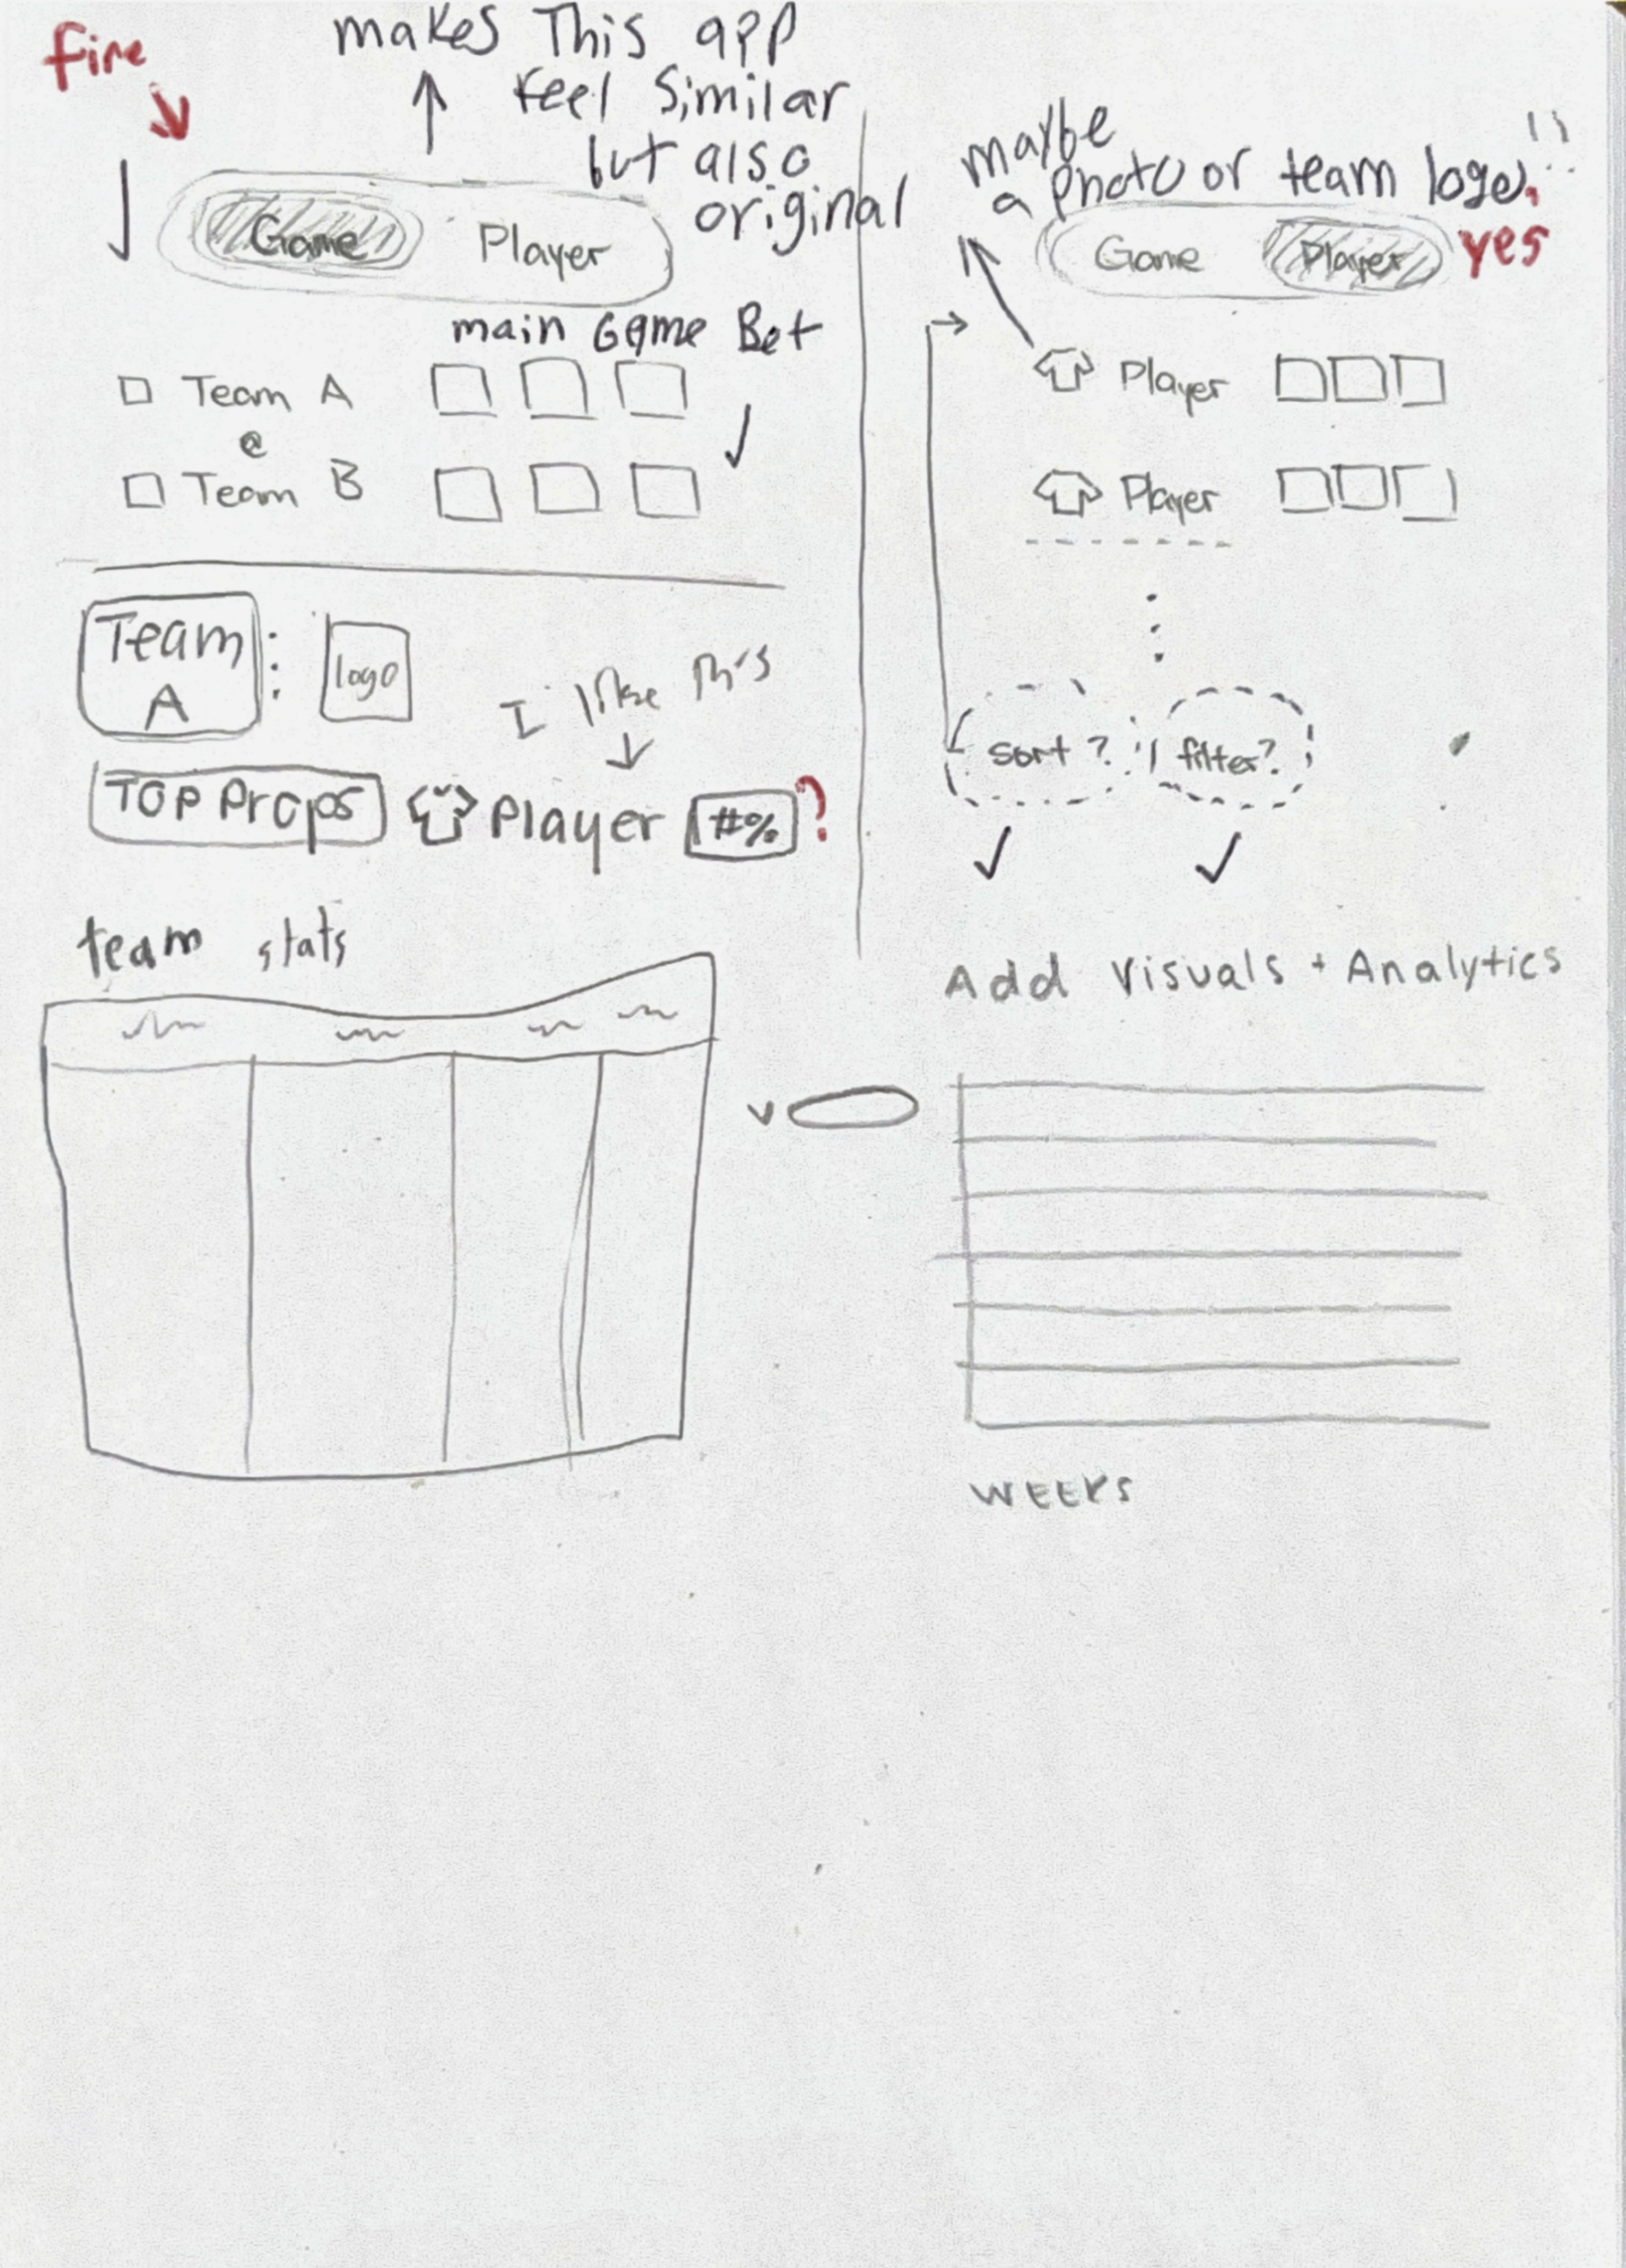 fire
makes This app
feel Similar
but also
original
Game Player
main Game Bet
Team A
@
Team B
Team
A
:
logo
I like this
Top Props Player #% ?
team stats
maybe
a photo or team logo.
Game Player yes
Player
Player
sort? filter?
Add Visuals + Analytics
WEEKS